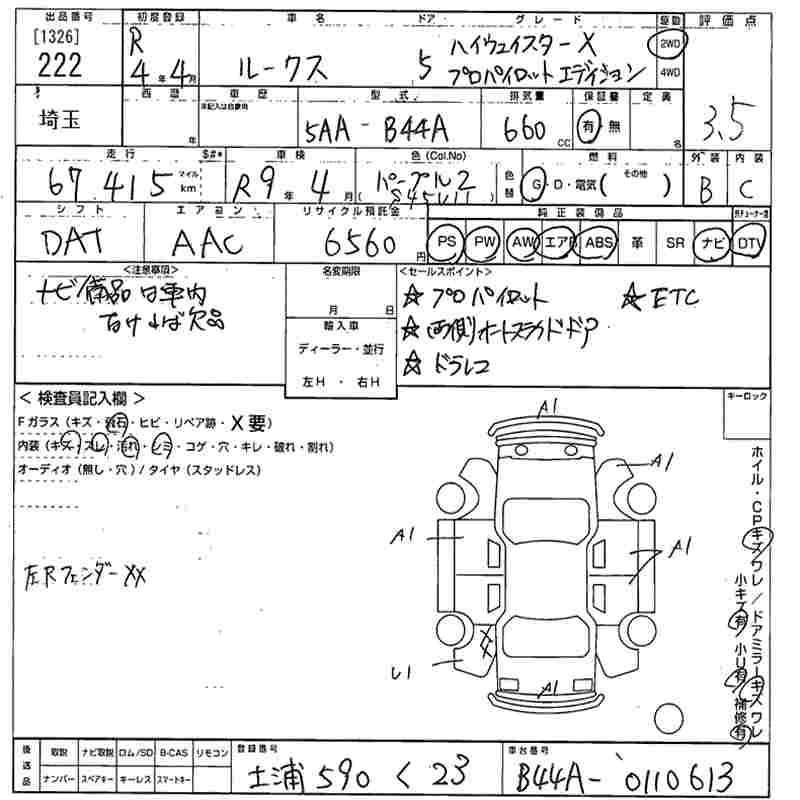 出品番号 初度登録 車名 ドア グレード 駆動 評価点
[1326] R ハイウェイスターX 2WD
222 4年4月 ルークス 5 プロパイロットエディション 4WD 3.5
西暦 車歴 型式 排気量 保証書 定員
埼玉 年 未記入は自家用 5AA-B44A 660cc 有・無 名
走行 $#* 車検 色(Col.No) 燃料 外装 内装
67415 マイル km R9年4月 パープル2 色替 G・D・電気(その他) B C
シフト エアコン リサイクル預託金 純正装備品
DAT AAC 6560円 PS PW AW エアB ABS 革 SR ナビ DTV
<注意事項> 名変期限 <セールスポイント>
ナビ備品は車内 月 日 ☆プロパイロット ☆ETC
なければ欠品 輸入車 ☆両側オートスライドドア
ディーラー・並行 ☆ドラレコ
左H・右H
<検査員記入欄> キーロック
Fガラス(キズ・飛石・ヒビ・リペア跡・X要)
内装(キズ・スレ・汚れ・シミ・コゲ・穴・キレ・破れ・割れ)
オーディオ(無し・穴)/タイヤ(スタッドレス)
左Rフェンダー XX
A1
A1
A1
A1
U1
XX
A1
ホイル・CPキズワレ/ドアミラーキズワレ
小キズ有 小U有 補修有
後送品 取説 ナビ取説 ロム/SD B-CAS リモコン 登録番号 車台番号
ナンバー スペアキー キーレス スマートキー 土浦 590 く 23 B44A-0110613